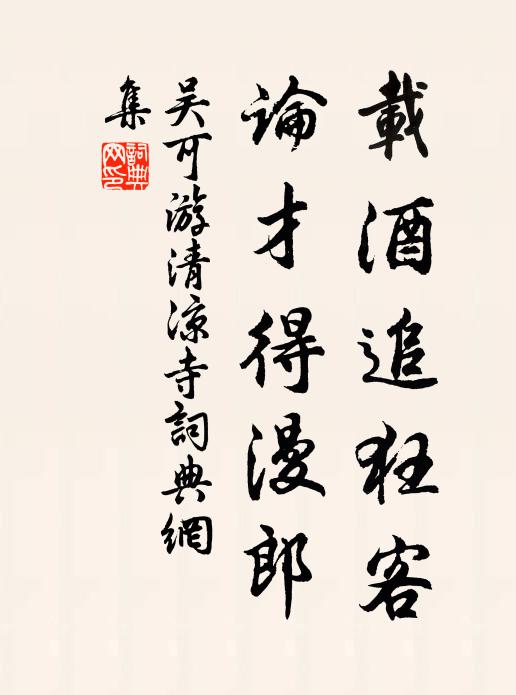 載酒追狂客
論才得漫郎
吳可游清凉寺詞典網
集
詞典網印